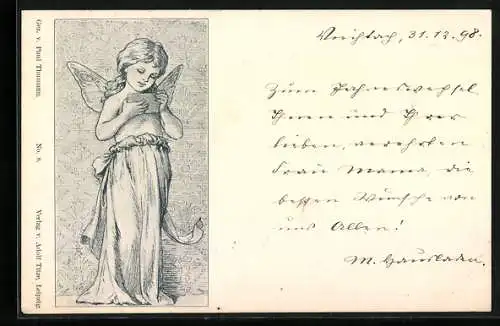 Gez. v. Paul Thumann.
No. 8.
Verlag v. Adolf Titze, Leipzig
Viechtach, 31.12.98.
Zum Jahreswechsel
Ihnen und Ihrer
lieben, verehrten
Frau Mama, die
besten Wünsche von
uns Allen!
M.